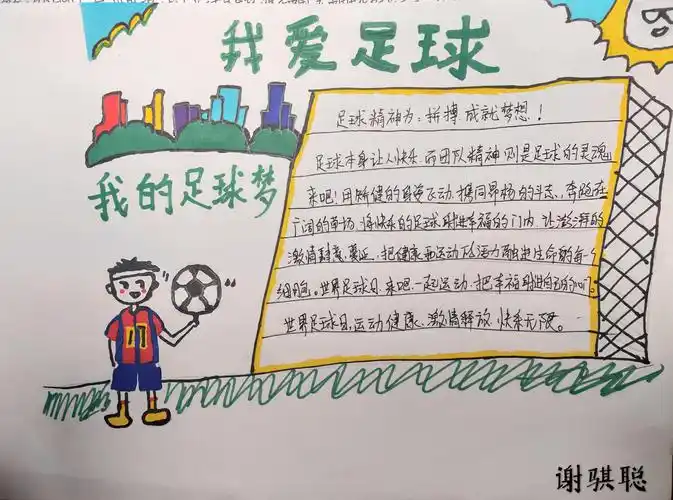 我爱足球
我的足球梦
足球精神为：拼搏成就梦想！
足球本身让人快乐，而团队精神则是足球的灵魂
来吧！用矫健的身姿飞动，携同昂扬的斗志，奔跑在
广阔的草场，将快乐的足球射进幸福的门内，让澎湃的
激情随意蔓延，把健康和运动的活力融进生命的每一个
细胞。世界足球日，来吧，一起运动，把幸福射进自己的门。
世界足球日，运动健康、激情释放、快乐无限。
谢骐聪